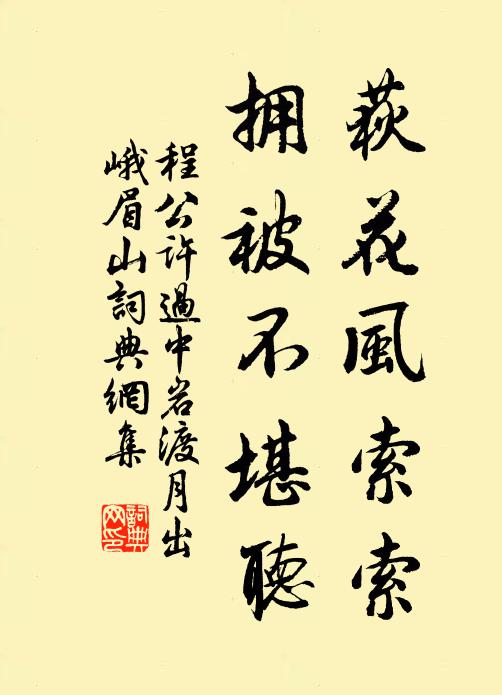 荻花風索索
擁被不堪聽
程公許過中岩渡月出
峨眉山詞典網集
詞典
网印